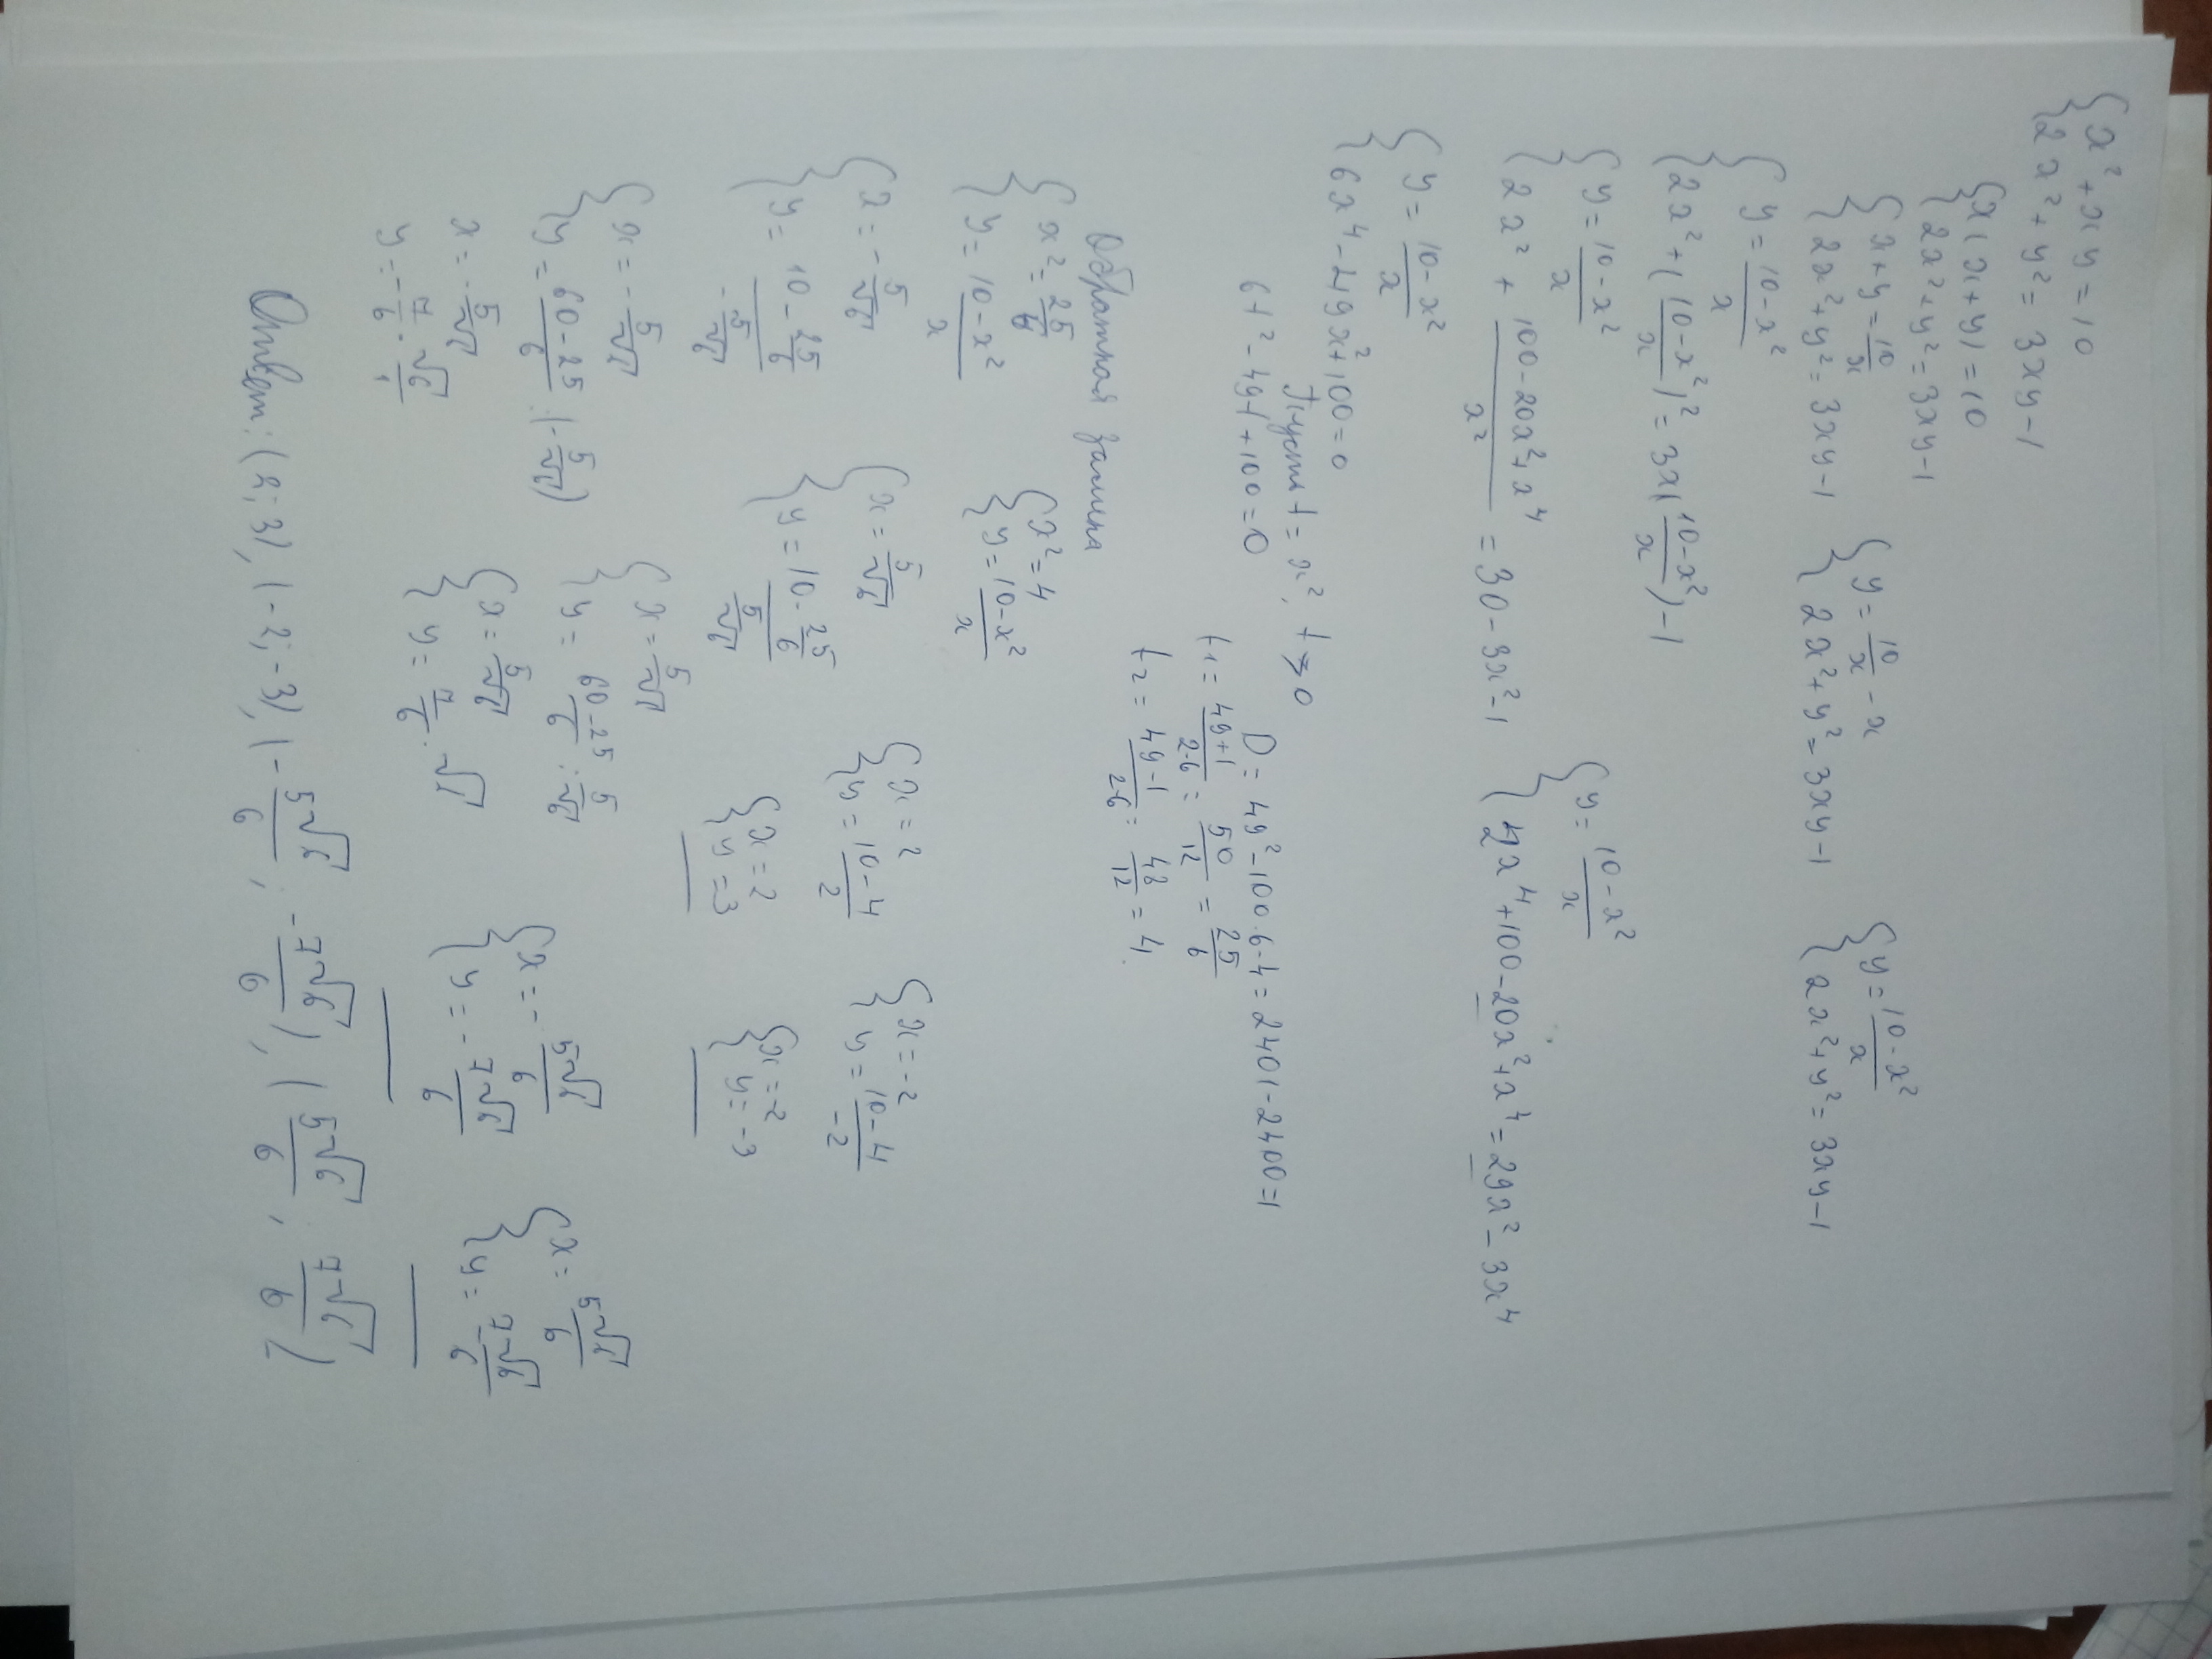 { x² + xy = 10
{ 2x² + y² = 3xy - 1
{ x(x+y) = 10
{ 2x² + y² = 3xy - 1
{ x + y = 10/x
{ 2x² + y² = 3xy - 1
{ y = 10/x - x
{ 2x² + y² = 3xy - 1
{ y = (10 - x²)/x
{ 2x² + y² = 3xy - 1
{ y = (10 - x²)/x
{ 2x² + ((10 - x²)/x)² = 3x((10 - x²)/x) - 1
{ y = (10 - x²)/x
{ 2x² + (100 - 20x² + x⁴)/x² = 30 - 3x² - 1
{ y = (10 - x²)/x
{ 2x⁴ + 100 - 20x² + x⁴ = 29x² - 3x⁴
{ y = (10 - x²)/x
{ 6x⁴ - 49x² + 100 = 0
Пусть t = x², t ≥ 0
6t² - 49t + 100 = 0
D = 49² - 100·6·4 = 2401 - 2400 = 1
t₁ = (49+1)/(2·6) = 50/12 = 25/6
t₂ = (49-1)/(2·6) = 48/12 = 4
Обратная замена
{ x² = 25/6
{ y = (10 - x²)/x
{ x² = 4
{ y = (10 - x²)/x
{ x = -5/√6
{ y = (10 - 25/6)/(-5/√6)
{ x = 5/√6
{ y = (10 - 25/6)/(5/√6)
{ x = 2
{ y = (10 - 4)/2
{ x = -2
{ y = (10 - 4)/(-2)
{ x = 2
{ y = 3
{ x = -2
{ y = -3
{ x = -5/√6
{ y = (60 - 25)/6 : (-5/√6)
{ x = 5/√6
{ y = (60 - 25)/6 : 5/√6
x = -5/√6
y = -7/6 · √6/1
{ x = 5/√6
{ y = 7/6 · √6
{ x = -5√6/6
{ y = -7√6/6
{ x = 5√6/6
{ y = 7√6/6
Ответ: (2; 3), (-2; -3), (-5√6/6; -7√6/6), (5√6/6; 7√6/6)